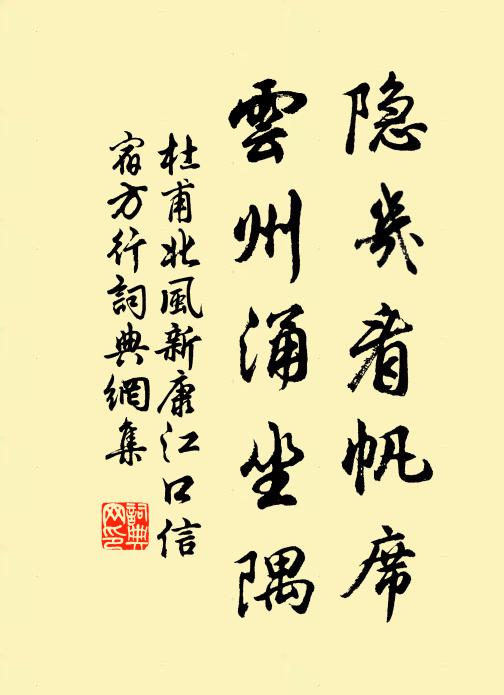 隐幾看帆席
雲州涌坐隅
杜甫北風新康江口信
宿方行詞典網集
詞典
网印